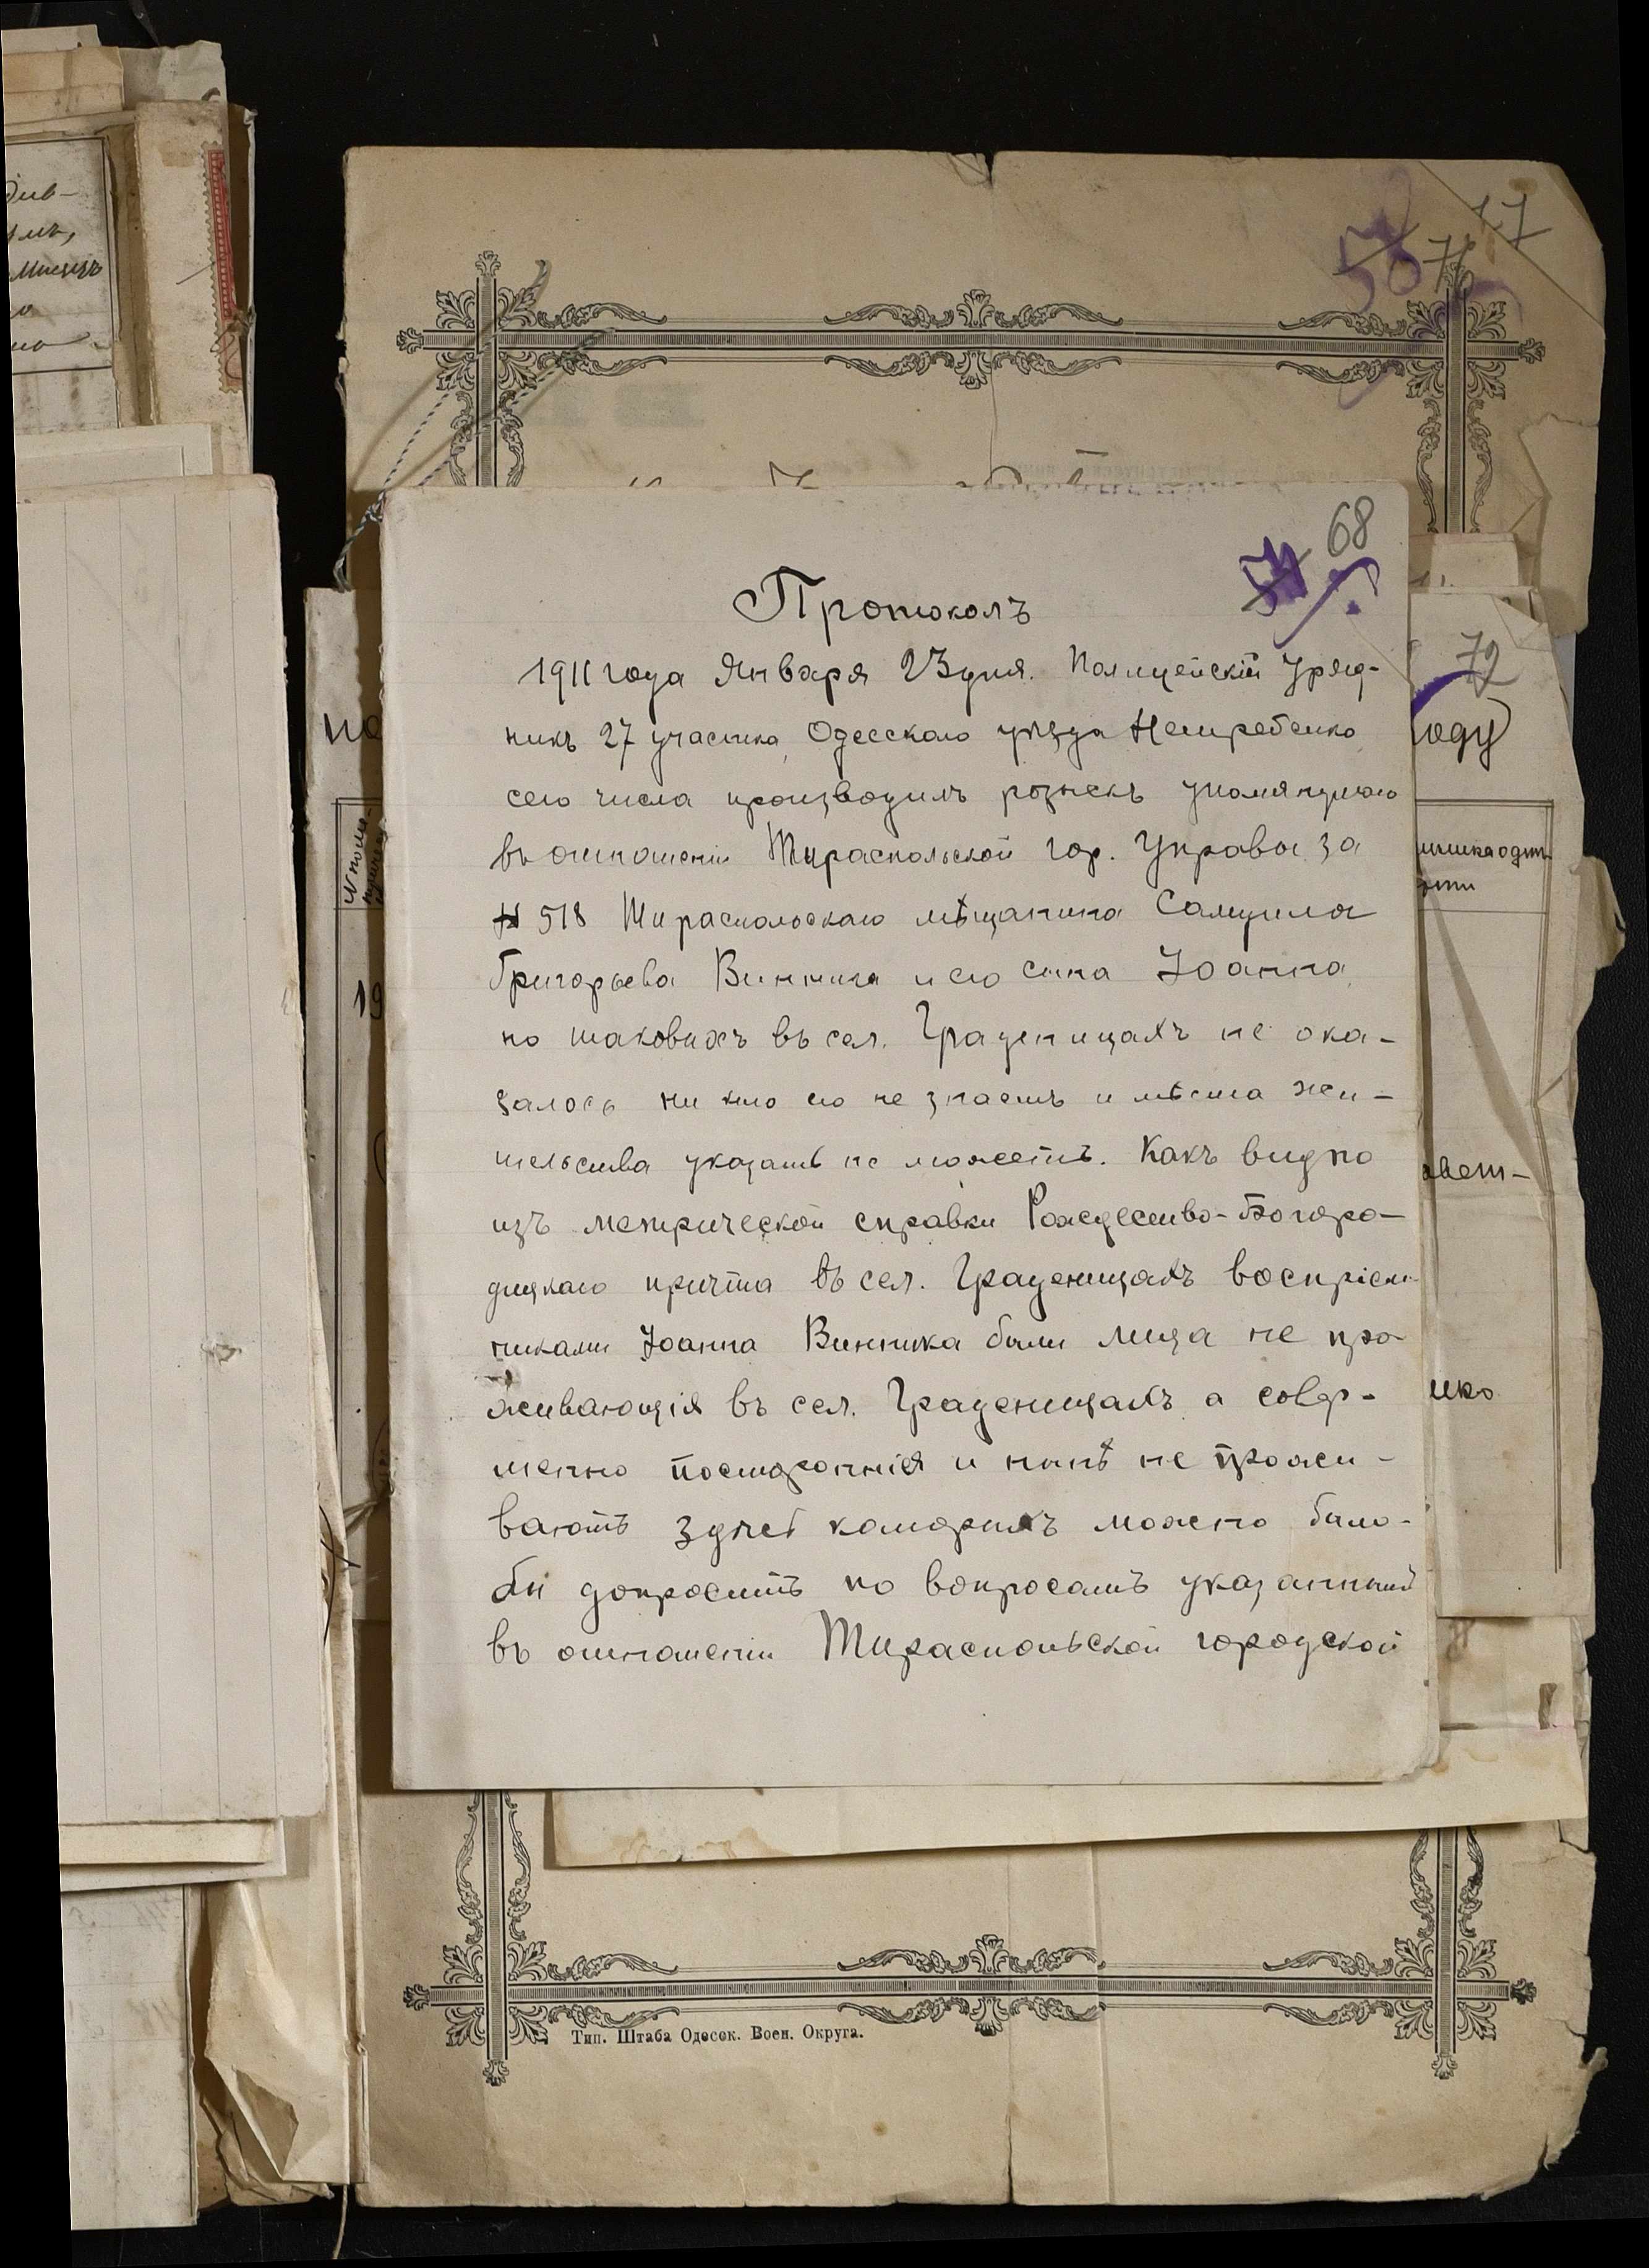 17
58 71
68
Протоколъ
1911 года Января 23 дня. Полицейскій Уряд-
никъ 27 участка, Одесскаго уѣзда Нетребенко
сего числа производилъ розыскъ упомянутаго
въ отношеніи Тираспольской гор. Управы за
N 518 Тираспольскаго мѣщанина Самуила
Григорьева Винника и его сына Іоанна,
но таковыхъ въ сел. Граденицахъ не ока-
залось ни кто его не знаетъ и мѣста жи-
тельства указать не можетъ. Какъ видно
изъ метрической справки Рождество-Богоро-
дицкаго причта въ сел. Граденицахъ воспріем-
никами Іоанна Винника были лица не про-
живающія въ сел. Граденицахъ а совер-
шенно постороннія и нынѣ не прожи-
ваютъ здѣсь которыхъ можно было-
бы допросить по вопросамъ указанный
въ отношеніи Тираспольской городской
72
оду)
авет-
ико
но
19
Тип. Штаба Одесск. Воен. Округа.